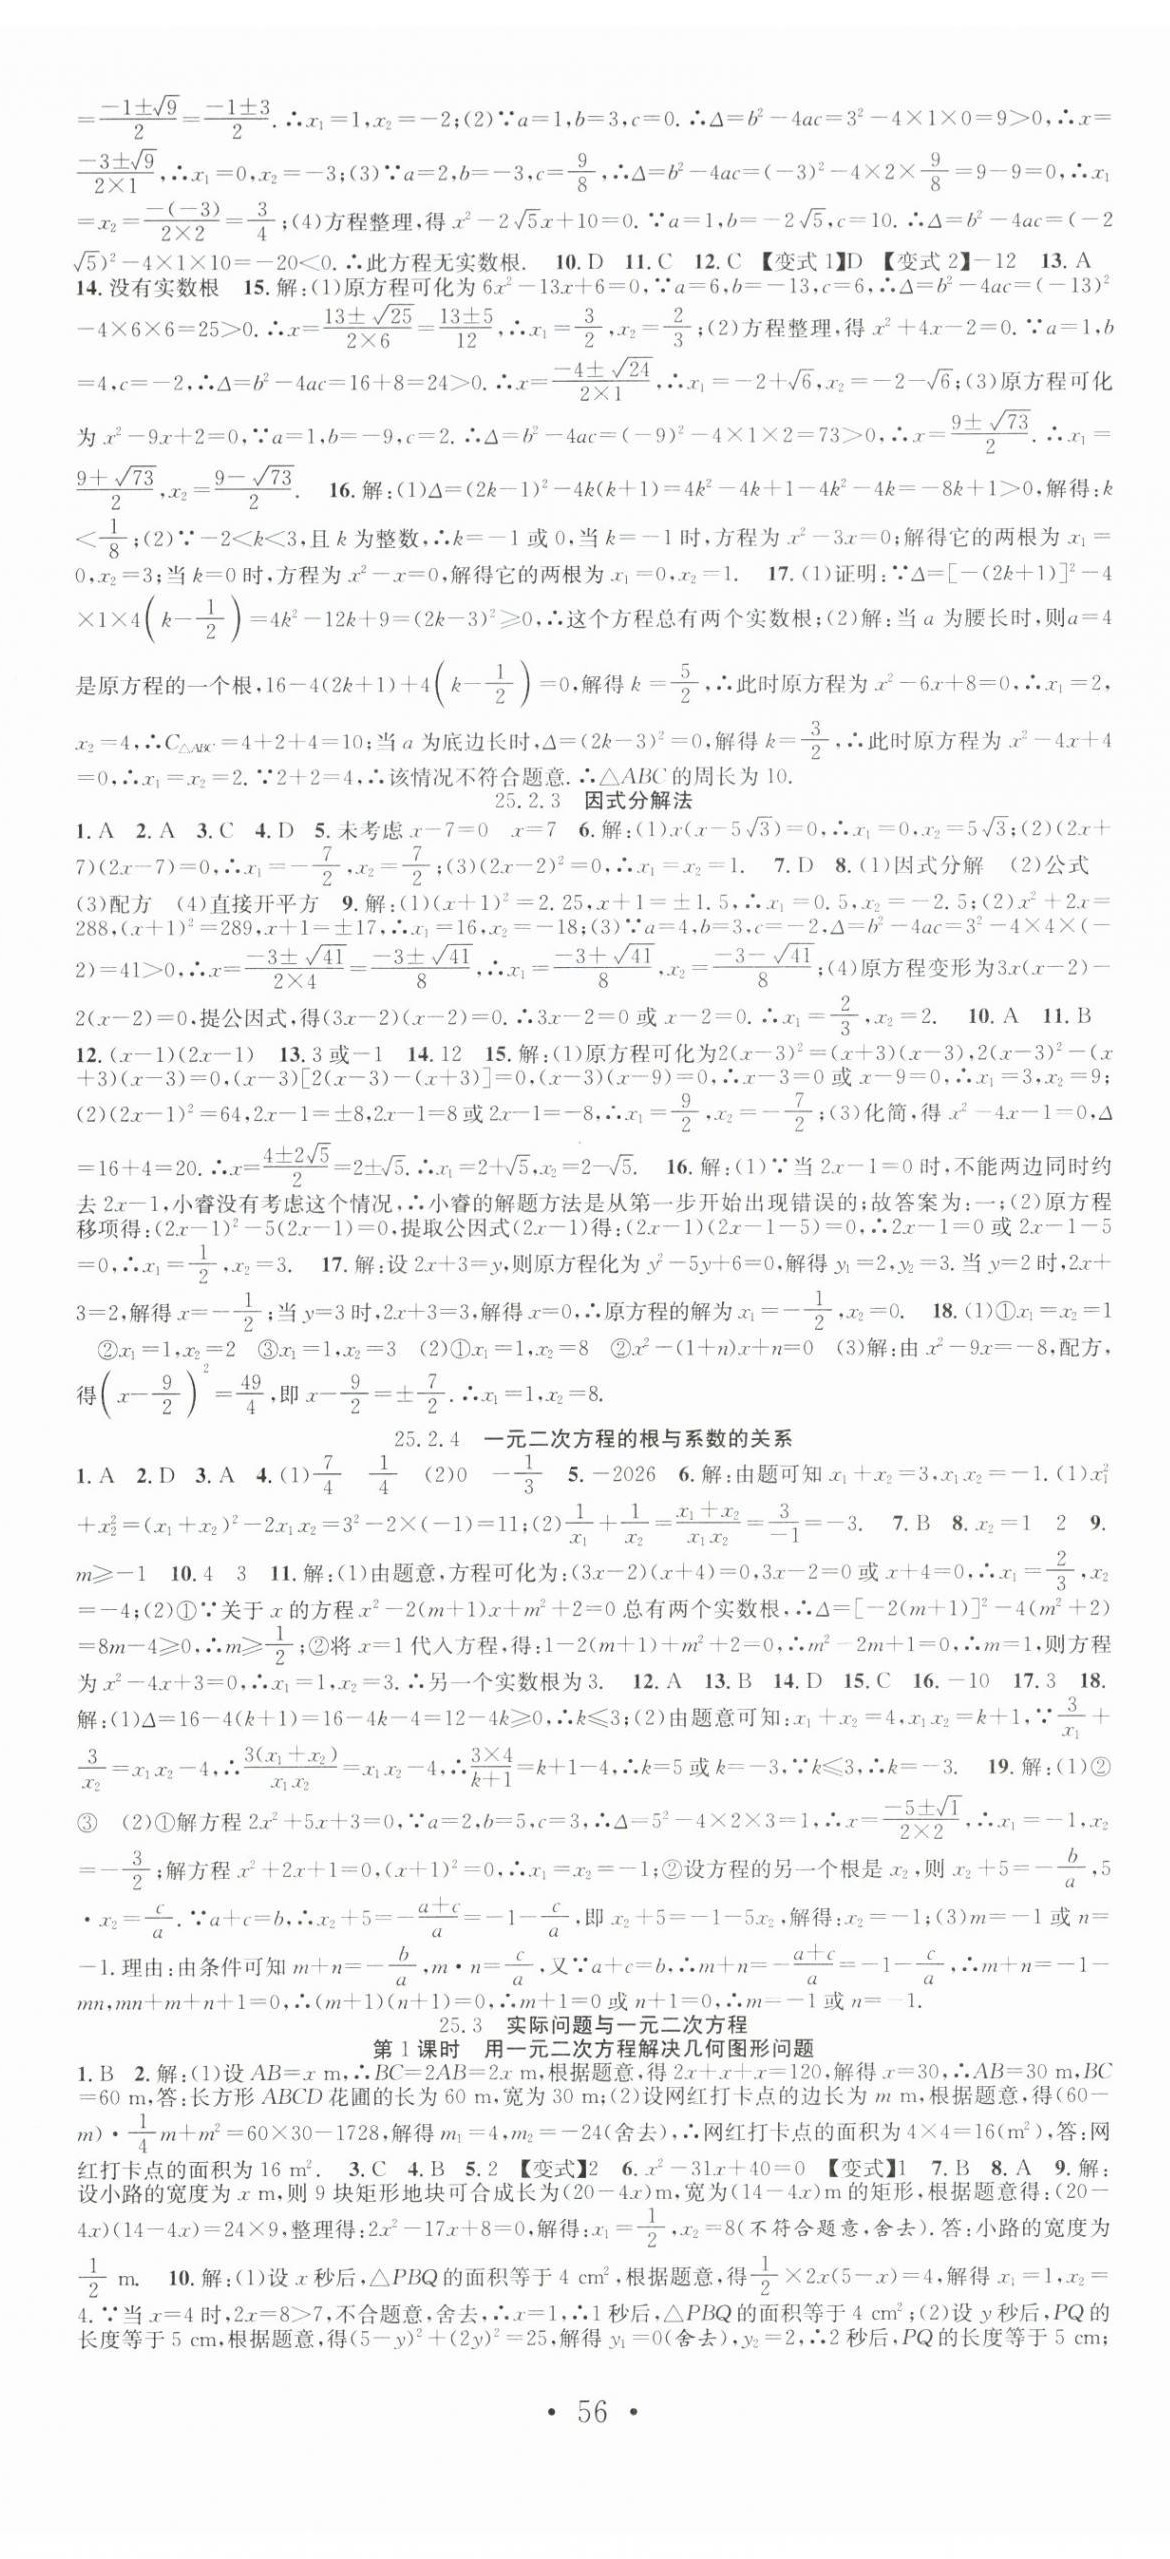 =(-1±√9)/2=(-1±3)/2.∴x₁=1,x₂=-2;(2)∵a=1,b=3,c=0.∴Δ=b²-4ac=3²-4×1×0=9>0,∴x=
(-3±√9)/(2×1),∴x₁=0,x₂=-3;(3)∵a=2,b=-3,c=9/8,∴Δ=b²-4ac=(-3)²-4×2×9/8=9-9=0,∴x₁
=x₂=-(-3)/(2×2)=3/4;(4)方程整理,得 x²-2√5x+10=0.∵a=1,b=-2√5,c=10.∴Δ=b²-4ac=(-2
√5)²-4×1×10=-20<0.∴此方程无实数根. 10.D 11.C 12.C 【变式1】D 【变式2】-12 13.A
14.没有实数根 15.解:(1)原方程可化为 6x²-13x+6=0,∵a=6,b=-13,c=6,∴Δ=b²-4ac=(-13)²
-4×6×6=25>0.∴x=(13±√25)/(2×6)=(13±5)/12,∴x₁=3/2,x₂=2/3;(2)方程整理,得 x²+4x-2=0.∵a=1,b
=4,c=-2,∴Δ=b²-4ac=16+8=24>0.∴x=(-4±√24)/(2×1),∴x₁=-2+√6,x₂=-2-√6;(3)原方程可化
为 x²-9x+2=0,∵a=1,b=-9,c=2.∴Δ=b²-4ac=(-9)²-4×1×2=73>0,∴x=(9±√73)/2.∴x₁=
(9+√73)/2,x₂=(9-√73)/2. 16.解:(1)Δ=(2k-1)²-4k(k+1)=4k²-4k+1-4k²-4k=-8k+1>0,解得:k
<1/8;(2)∵-2<k<3,且 k 为整数,∴k=-1 或 0,当 k=-1 时,方程为 x²-3x=0;解得它的两根为 x₁=
0,x₂=3;当 k=0 时,方程为 x²-x=0,解得它的两根为 x₁=0,x₂=1. 17.(1)证明:∵Δ=[-(2k+1)]²-4
×1×4(k-1/2)=4k²-12k+9=(2k-3)²≥0,∴这个方程总有两个实数根;(2)解:当 a 为腰长时,则a=4
是原方程的一个根,16-4(2k+1)+4(k-1/2)=0,解得 k=5/2,∴此时原方程为 x²-6x+8=0,∴x₁=2,
x₂=4,∴C△ABC=4+2+4=10;当 a 为底边长时,Δ=(2k-3)²=0,解得 k=3/2,∴此时原方程为 x²-4x+4
=0,∴x₁=x₂=2.∵2+2=4,∴该情况不符合题意.∴△ABC 的周长为 10.
25.2.3 因式分解法
1.A 2.A 3.C 4.D 5.未考虑 x-7=0 x=7 6.解:(1)x(x-5√3)=0,∴x₁=0,x₂=5√3;(2)(2x+
7)(2x-7)=0,∴x₁=-7/2,x₂=7/2;(3)(2x-2)²=0,∴x₁=x₂=1. 7.D 8.(1)因式分解 (2)公式
(3)配方 (4)直接开平方 9.解:(1)(x+1)²=2.25,x+1=±1.5,∴x₁=0.5,x₂=-2.5;(2)x²+2x=
288,(x+1)²=289,x+1=±17,∴x₁=16,x₂=-18;(3)∵a=4,b=3,c=-2,Δ=b²-4ac=3²-4×4×(-
2)=41>0,∴x=(-3±√41)/(2×4)=(-3±√41)/8,∴x₁=(-3+√41)/8,x₂=(-3-√41)/8;(4)原方程变形为3x(x-2)-
2(x-2)=0,提公因式,得(3x-2)(x-2)=0.∴3x-2=0 或 x-2=0.∴x₁=2/3,x₂=2. 10.A 11.B
12.(x-1)(2x-1) 13.3 或-1 14.12 15.解:(1)原方程可化为2(x-3)²=(x+3)(x-3),2(x-3)²-(x
+3)(x-3)=0,(x-3)[2(x-3)-(x+3)]=0,(x-3)(x-9)=0,∴x-3=0 或 x-9=0,∴x₁=3,x₂=9;
(2)(2x-1)²=64,2x-1=±8,2x-1=8 或 2x-1=-8,∴x₁=9/2,x₂=-7/2;(3)化简,得 x²-4x-1=0,Δ
=16+4=20.∴x=(4±2√5)/2=2±√5.∴x₁=2+√5,x₂=2-√5. 16.解:(1)∵当 2x-1=0 时,不能两边同时约
去 2x-1,小睿没有考虑这个情况,∴小睿的解题方法是从第一步开始出现错误的;故答案为:一;(2)原方程
移项得:(2x-1)²-5(2x-1)=0,提取公因式(2x-1)得:(2x-1)(2x-1-5)=0,∴2x-1=0 或 2x-1-5
=0,∴x₁=1/2,x₂=3. 17.解:设 2x+3=y,则原方程化为 y²-5y+6=0,解得 y₁=2,y₂=3.当 y=2 时,2x+
3=2,解得 x=-1/2;当 y=3 时,2x+3=3,解得 x=0,∴原方程的解为 x₁=-1/2,x₂=0. 18.(1)①x₁=x₂=1
②x₁=1,x₂=2 ③x₁=1,x₂=3 (2)①x₁=1,x₂=8 ②x²-(1+n)x+n=0 (3)解:由 x²-9x=-8,配方,
得(x-9/2)²=49/4,即 x-9/2=±7/2.∴x₁=1,x₂=8.
25.2.4 一元二次方程的根与系数的关系
1.A 2.D 3.A 4.(1)7/4 1/4 (2)0 -1/3 5.-2026 6.解:由题可知 x₁+x₂=3,x₁x₂=-1.(1)x₁²
+x₂²=(x₁+x₂)²-2x₁x₂=3²-2×(-1)=11;(2)1/x₁+1/x₂=(x₁+x₂)/(x₁x₂)=3/(-1)=-3. 7.B 8.x₂=1 2 9.
m≥-1 10.4 3 11.解:(1)由题意,方程可化为:(3x-2)(x+4)=0,3x-2=0 或 x+4=0,∴x₁=2/3,x₂
=-4;(2)①∵关于 x 的方程 x²-2(m+1)x+m²+2=0 总有两个实数根,∴Δ=[-2(m+1)]²-4(m²+2)
=8m-4≥0,∴m≥1/2;②将 x=1 代入方程,得:1-2(m+1)+m²+2=0,∴m²-2m+1=0,∴m=1,则方程
为 x²-4x+3=0,∴x₁=1,x₂=3.∴另一个实数根为 3. 12.A 13.B 14.D 15.C 16.-10 17.3 18.
解:(1)Δ=16-4(k+1)=16-4k-4=12-4k≥0,∴k≤3;(2)由题意可知:x₁+x₂=4,x₁x₂=k+1,∵3/x₁+
3/x₂=x₁x₂-4,∴3(x₁+x₂)/(x₁x₂)=x₁x₂-4,∴(3×4)/(k+1)=k+1-4,∴k=5 或 k=-3,∵k≤3,∴k=-3. 19.解:(1)②
③ (2)①解方程 2x²+5x+3=0,∵a=2,b=5,c=3,∴Δ=5²-4×2×3=1,∴x=(-5±√1)/(2×2),∴x₁=-1,x₂
=-3/2;解方程 x²+2x+1=0,(x+1)²=0,∴x₁=x₂=-1;②设方程的另一个根是 x₂,则 x₂+5=-b/a,5
·x₂=c/a.∵a+c=b,∴x₂+5=-(a+c)/a=-1-c/a,即 x₂+5=-1-5x₂,解得:x₂=-1;(3)m=-1 或 n=
-1.理由:由条件可知 m+n=-b/a,m·n=c/a,又∵a+c=b,∴m+n=-(a+c)/a=-1-c/a,∴m+n=-1-
mn,mn+m+n+1=0,∴(m+1)(n+1)=0,∴m+1=0 或 n+1=0,∴m=-1 或 n=-1.
25.3 实际问题与一元二次方程
第 1 课时 用一元二次方程解决几何图形问题
1.B 2.解:(1)设 AB=x m,∴BC=2AB=2x m,根据题意,得 2x+x+x=120,解得 x=30,∴AB=30 m,BC
=60 m,答:长方形 ABCD 花圃的长为 60 m,宽为 30 m;(2)设网红打卡点的边长为 m m,根据题意,得(60-
m)·1/4m+m²=60×30-1728,解得 m₁=4,m₂=-24(舍去),∴网红打卡点的面积为 4×4=16(m²),答:网
红打卡点的面积为 16 m². 3.C 4.B 5.2 【变式】2 6.x²-31x+40=0 【变式】1 7.B 8.A 9.解:
设小路的宽度为 x m,则 9 块矩形地块可合成长为(20-4x)m,宽为(14-4x)m 的矩形,根据题意得:(20-
4x)(14-4x)=24×9,整理得:2x²-17x+8=0,解得:x₁=1/2,x₂=8(不符合题意,舍去).答:小路的宽度为
1/2 m. 10.解:(1)设 x 秒后,△PBQ 的面积等于 4 cm²,根据题意,得1/2×2x(5-x)=4,解得 x₁=1,x₂=
4.∵当 x=4 时,2x=8>7,不合题意,舍去,∴x=1,∴1 秒后,△PBQ 的面积等于 4 cm²;(2)设 y 秒后,PQ 的
长度等于 5 cm,根据题意,得(5-y)²+(2y)²=25,解得 y₁=0(舍去),y₂=2,∴2 秒后,PQ 的长度等于 5 cm;
· 56 ·